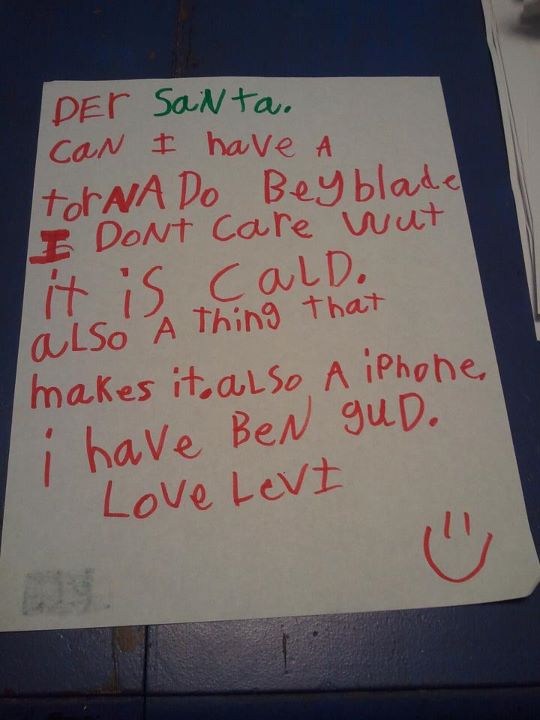 DEr SaNta.
CaN I have A
torNADo Beyblade
I DoNt Care wut
it iS CaLD.
aLSo A thing that
makes it.aLSo A iPhone.
i haVe BeN guD.
LoVe LeVI